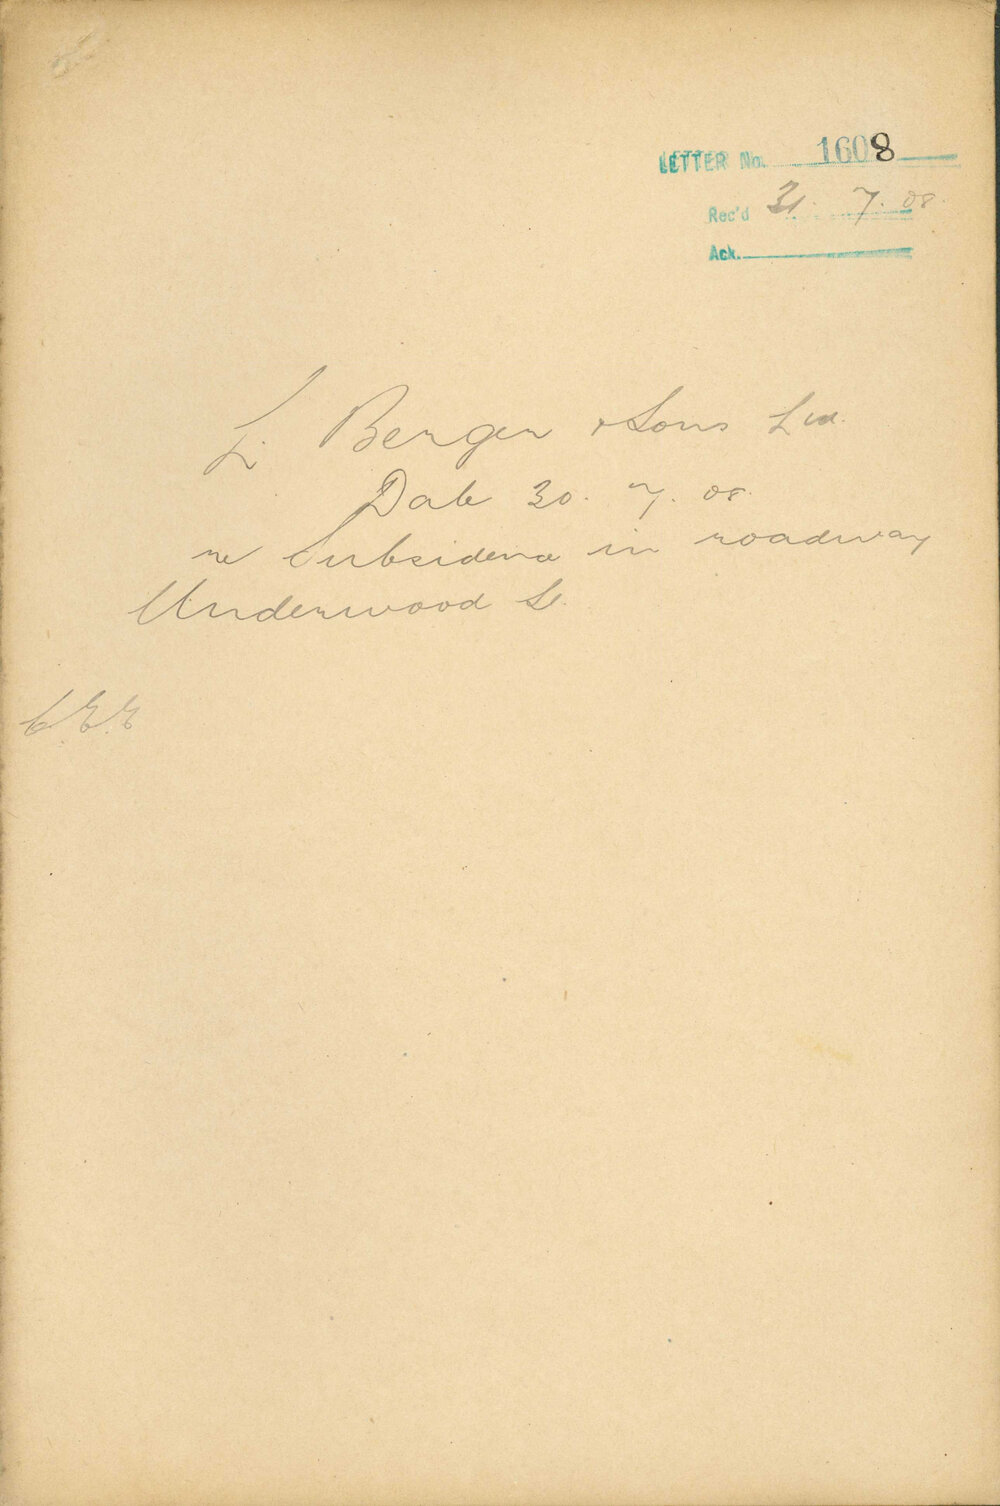 LETTER No. 1608
Rec'd 31. 7. 08.
Ack.
L. Berger & Sons Ltd.
Date 30. 7. 08.
re Subsidence in roadway
Underwood St.
C.E.E